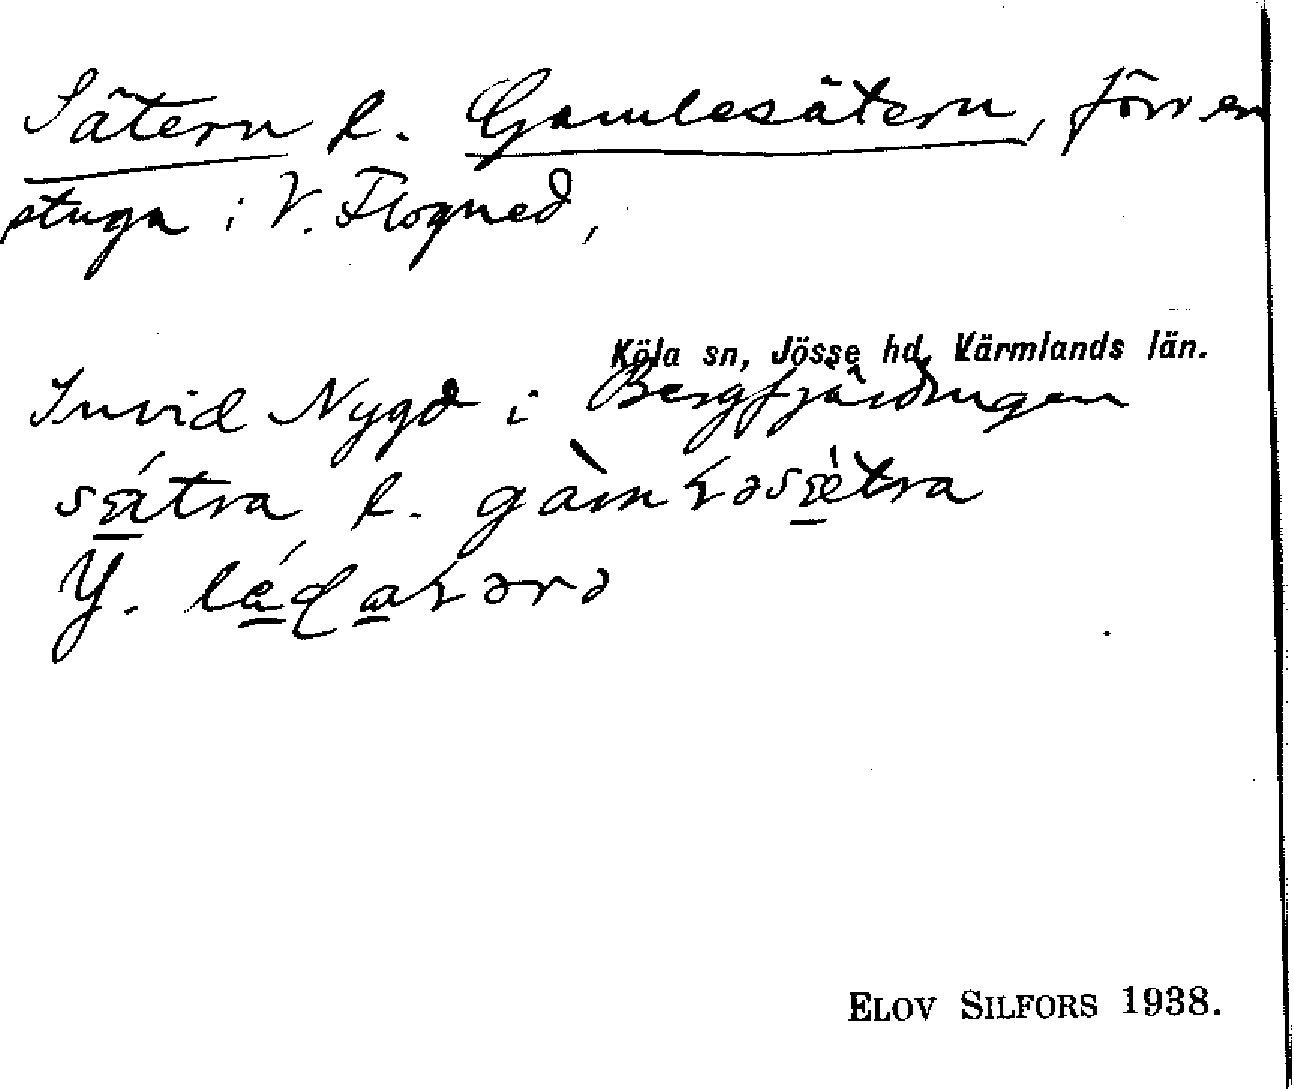 Sätern l. Gamlesätern, förr en
stuga i V. Flogned,
Köla sn, Jösse hd, Värmlands län.
Invid Nygd i Bergfjärdingen
sǽtra l. gàmɽəsætra
Y.
ELOV SILFORS 1938.